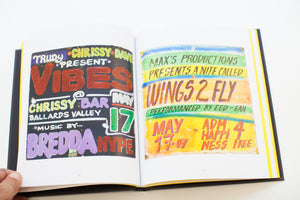 TRUDY "CHRISSY" DAVE
PRESENT
VIBES
@
CHRISSY BAR
BALLARDS VALLEY
MAY
17
MUSIC BY...
BREDDA HYPE
MAX'S PRODUCTIONS
PRESENTS A NITE CALLED
WINGS 2 FLY
PERFORMANCED BY FED-EAH
MAY
17·07
ADM
HAPPI
NESS
4
FREE